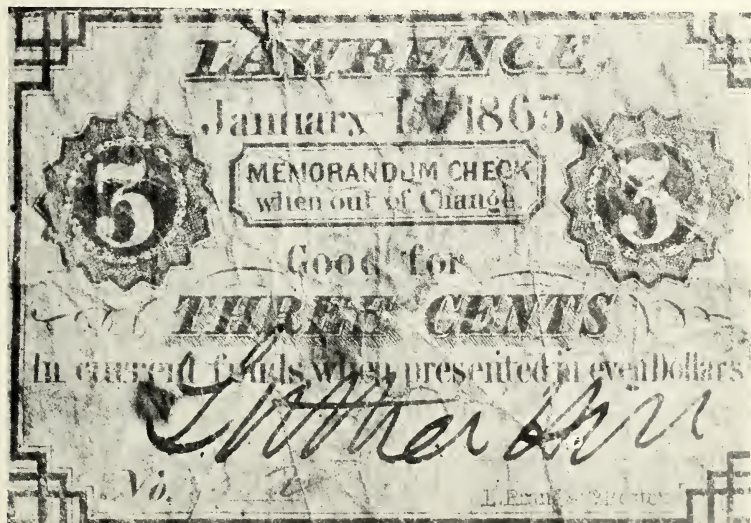 LAWRENCE,
January 1 1865
3
MEMORANDUM CHECK
when out of Change
3
Good for
THREE CENTS
In current funds, when presented in even Dollars
No.